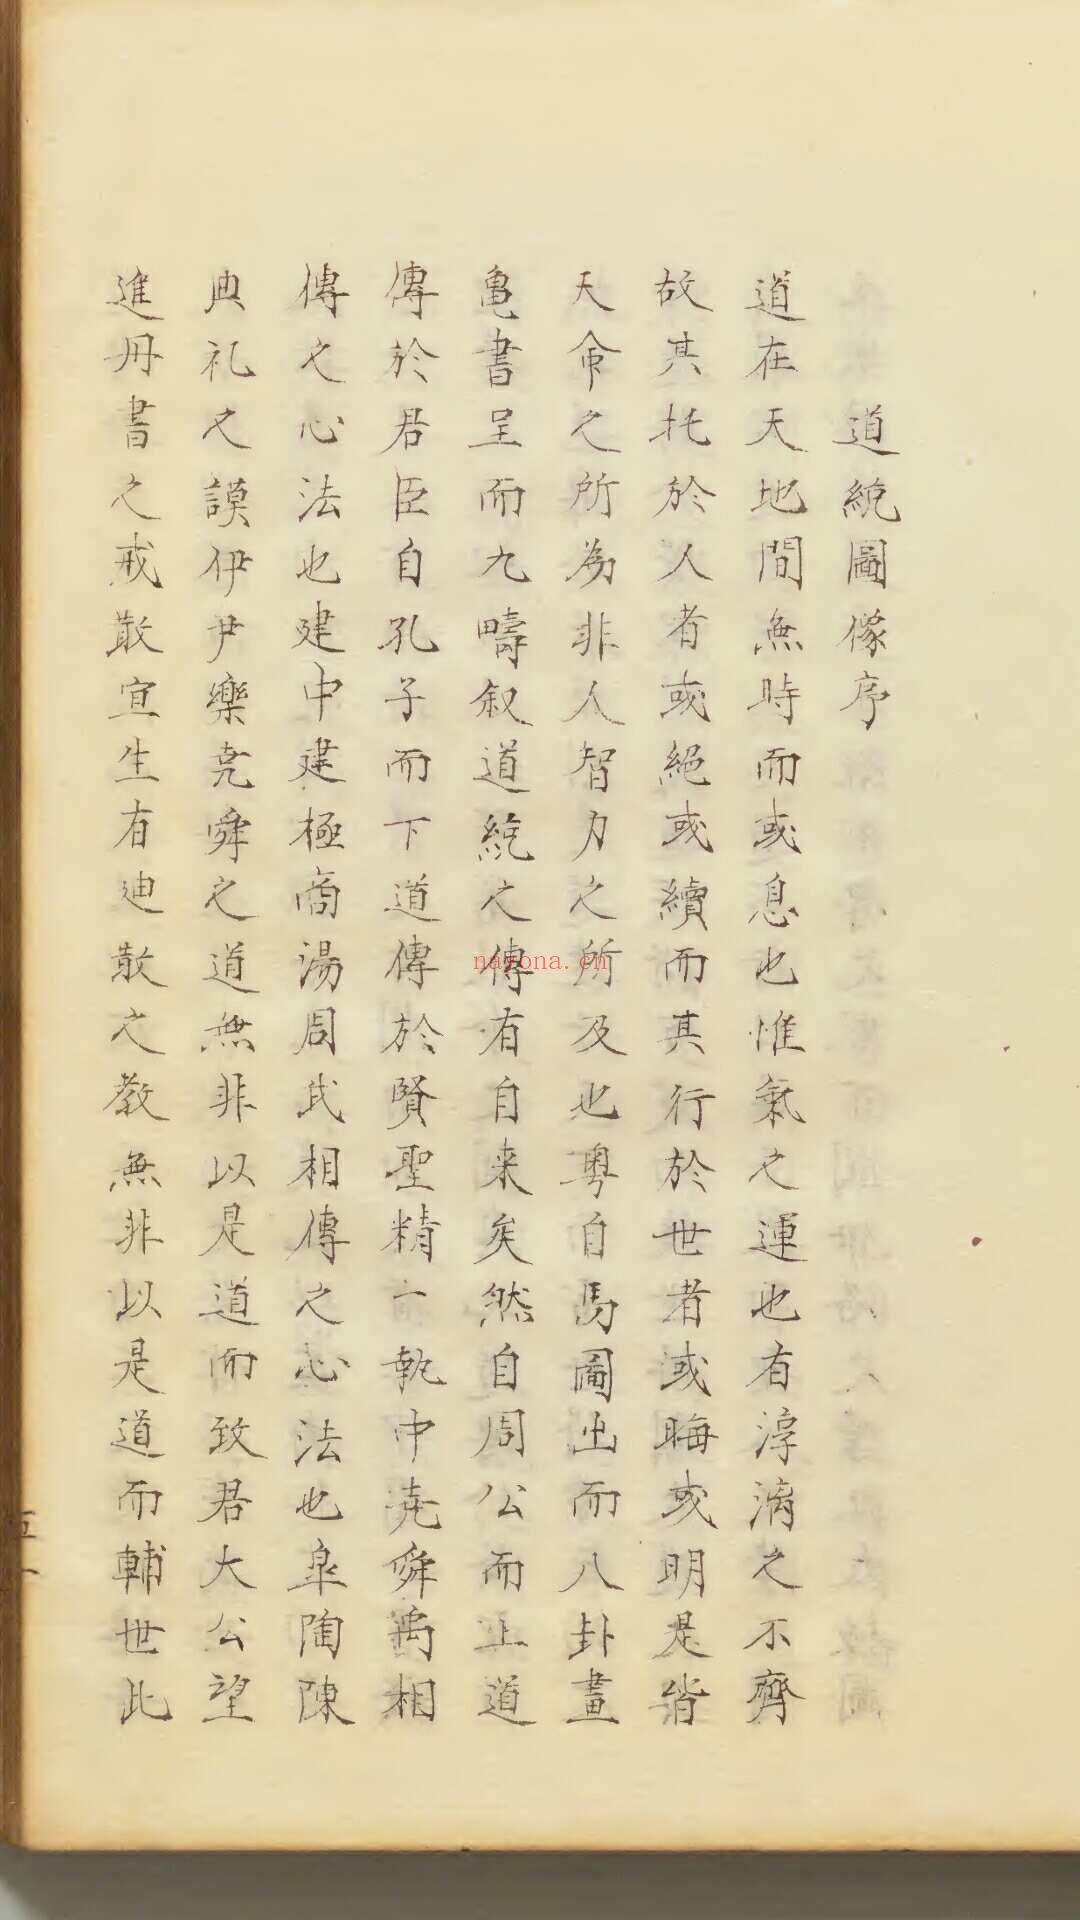 道統圖像序
道在天地間無時而或息也惟氣之運也有淳漓之不齊
故其托於人者或絕或續而其行於世者或晦或明是皆
天命之所為非人智力之所及也粵自馬圖出而八卦畫
龜書呈而九疇叙道統之傳有自来矣然自周公而上道
傳於君臣自孔子而下道傳於賢聖精一執中堯舜禹相
傳之心法也建中建極商湯周武相傳之心法也臯陶陳
典礼之謨伊尹樂堯舜之道無非以是道而致君大公望
進丹書之戒散宜生有迪散之教無非以是道而輔世此
nayona.cn